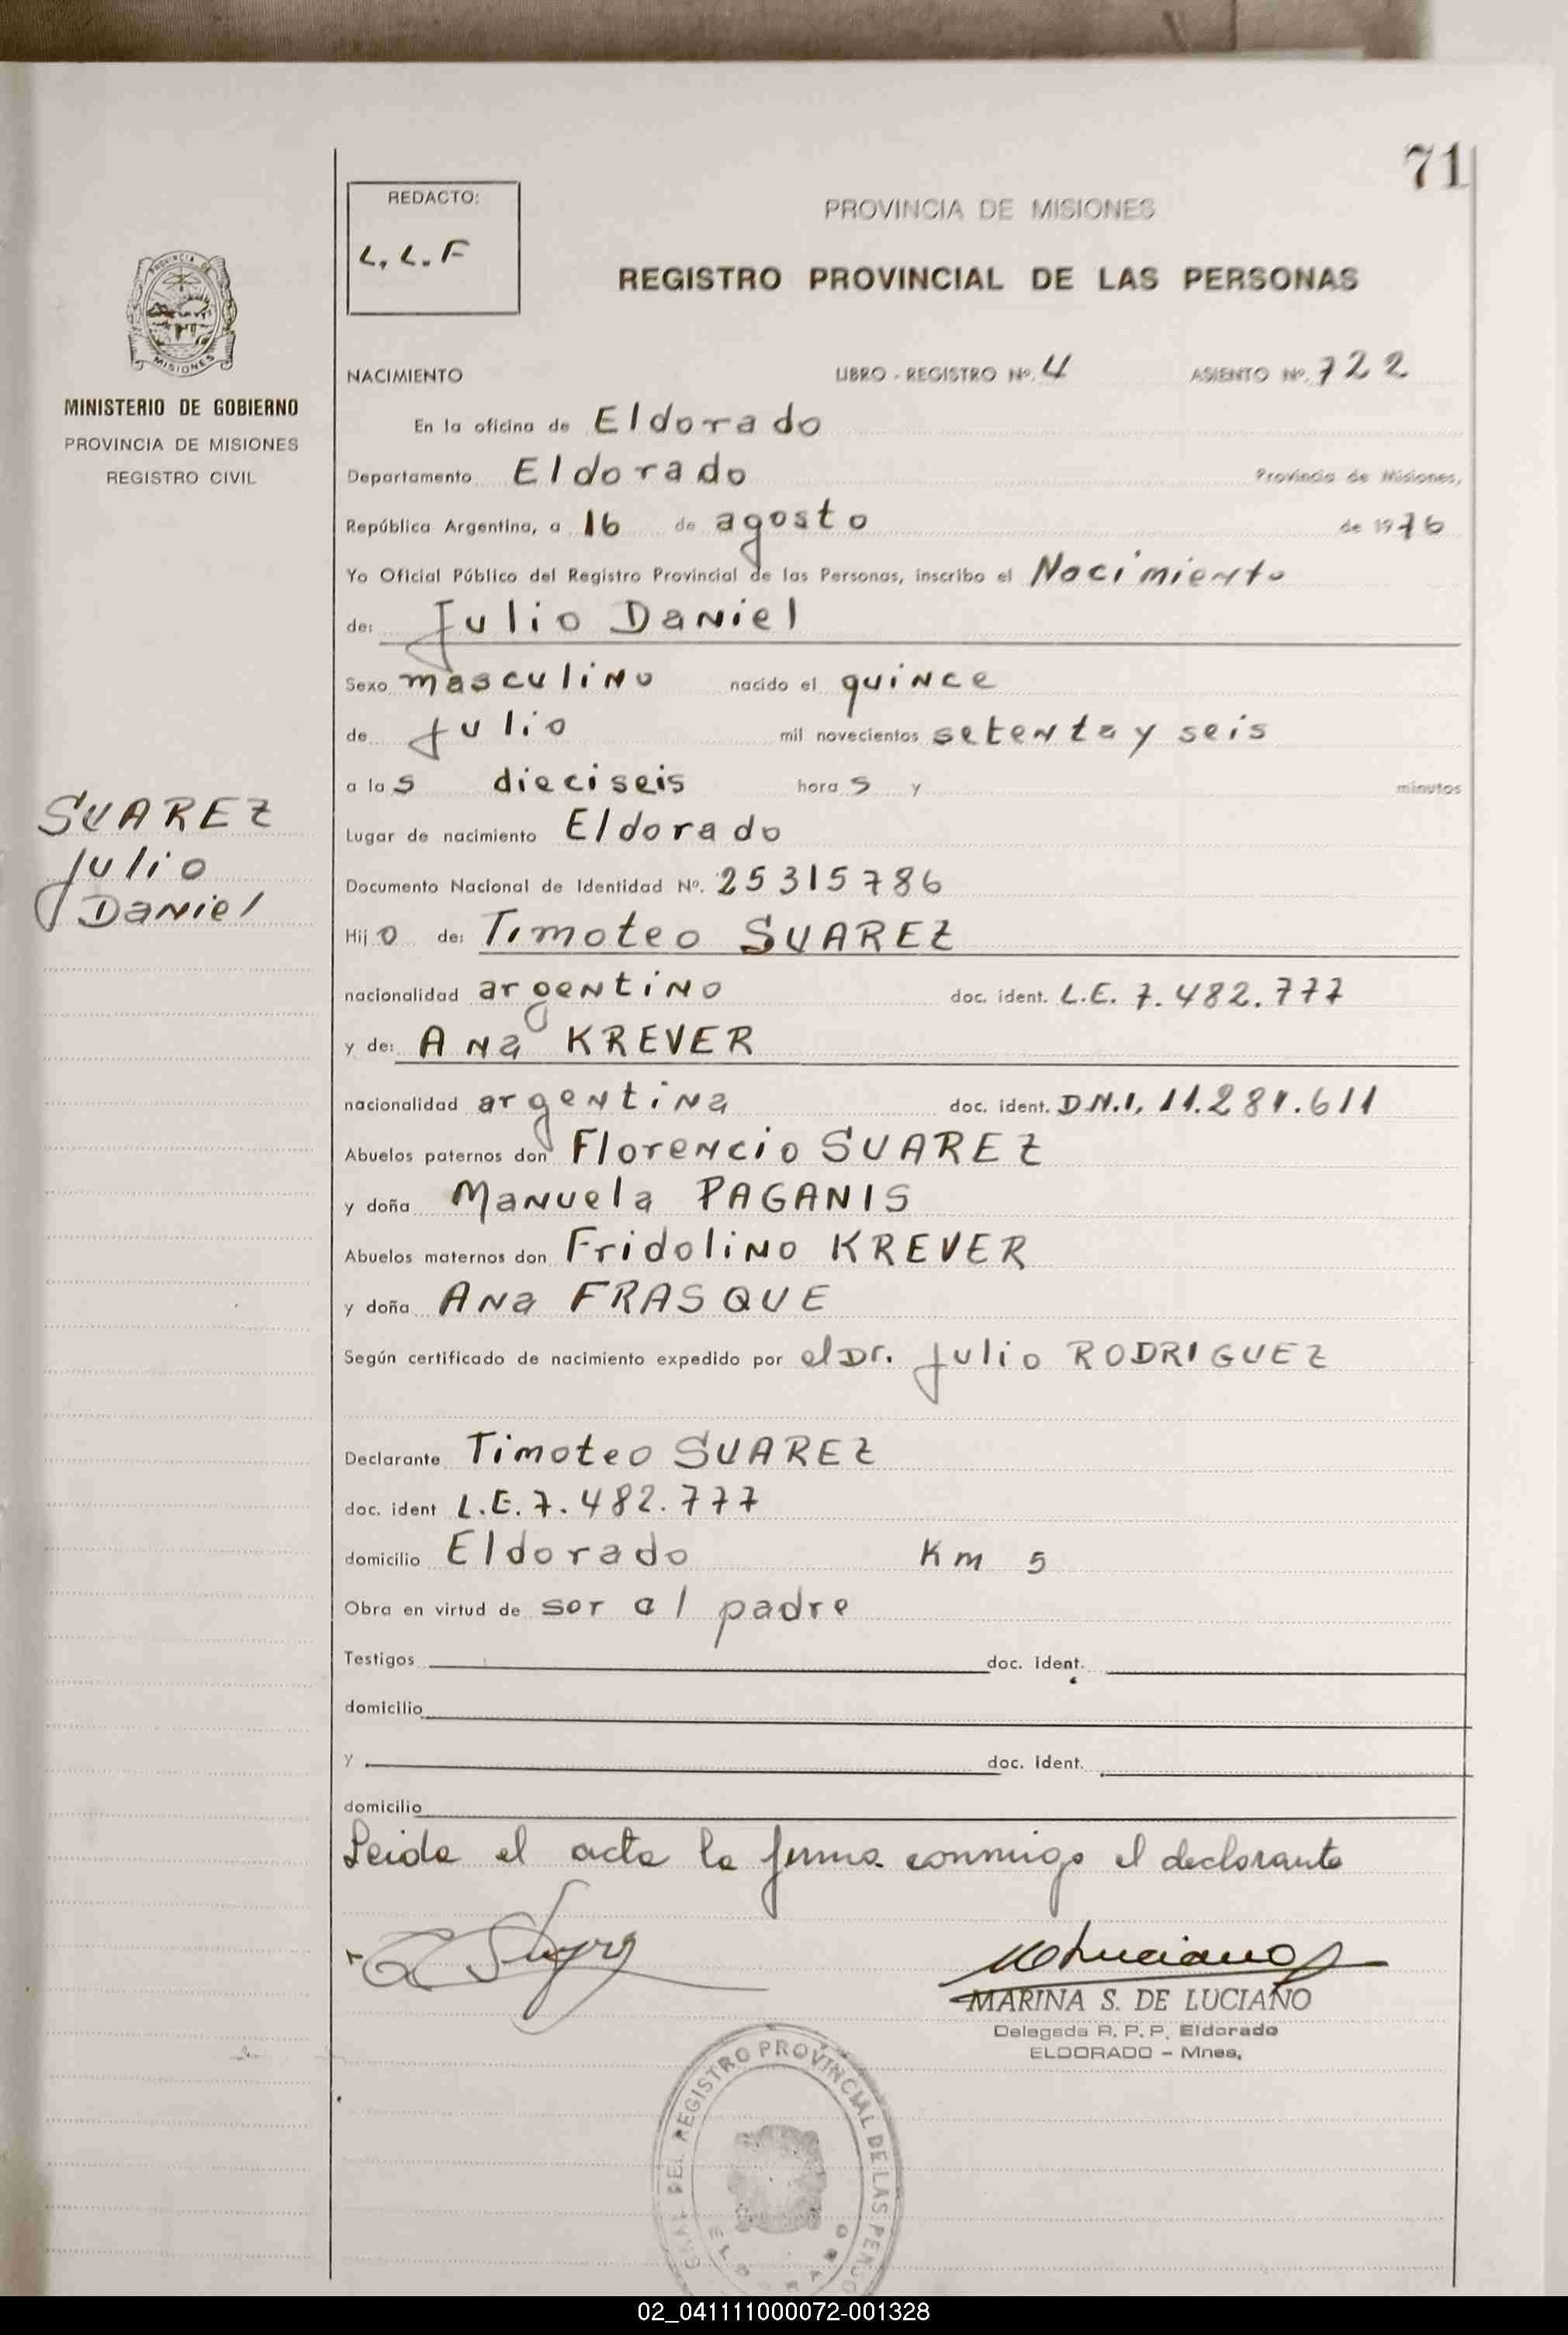 71
REDACTO:
L. L. F
PROVINCIA DE MISIONES
REGISTRO PROVINCIAL DE LAS PERSONAS
PROVINCIA DE
MISIONES
MINISTERIO DE GOBIERNO
PROVINCIA DE MISIONES
REGISTRO CIVIL
NACIMIENTO LIBRO - REGISTRO Nº. 4 ASIENTO Nº. 722
En la oficina de Eldorado
Departamento Eldorado Provincia de Misiones,
República Argentina, a 16 de agosto de 1976
Yo Oficial Público del Registro Provincial de las Personas, inscribo el Nacimiento
de: Julio Daniel
Sexo masculino nacido el quince
de Julio mil novecientos setenta y seis
a las dieciseis horas y minutos
SUAREZ
Julio
Daniel
Lugar de nacimiento Eldorado
Documento Nacional de Identidad Nº. 25315786
Hijo de: Timoteo SUAREZ
nacionalidad argentino doc. ident. L.E. 7.482.777
y de: Ana KREVER
nacionalidad argentina doc. ident. D.N.I. 11.281.611
Abuelos paternos don Florencio SUAREZ
y doña Manuela PAGANIS
Abuelos maternos don Fridolino KREVER
y doña Ana FRASQUE
Según certificado de nacimiento expedido por el Dr. Julio RODRIGUEZ
Declarante Timoteo SUAREZ
doc. ident L.E. 7.482.777
domicilio Eldorado Km 5
Obra en virtud de ser el padre
Testigos doc. ident.
domicilio
y doc. ident.
domicilio
Leida el acta la firma conmigo el declarante
MARINA S. DE LUCIANO
Delegada R. P. P. Eldorado
ELDORADO - Mnes,
DEL REGISTRO PROVINCIAL DE LAS
02_041111000072-001328